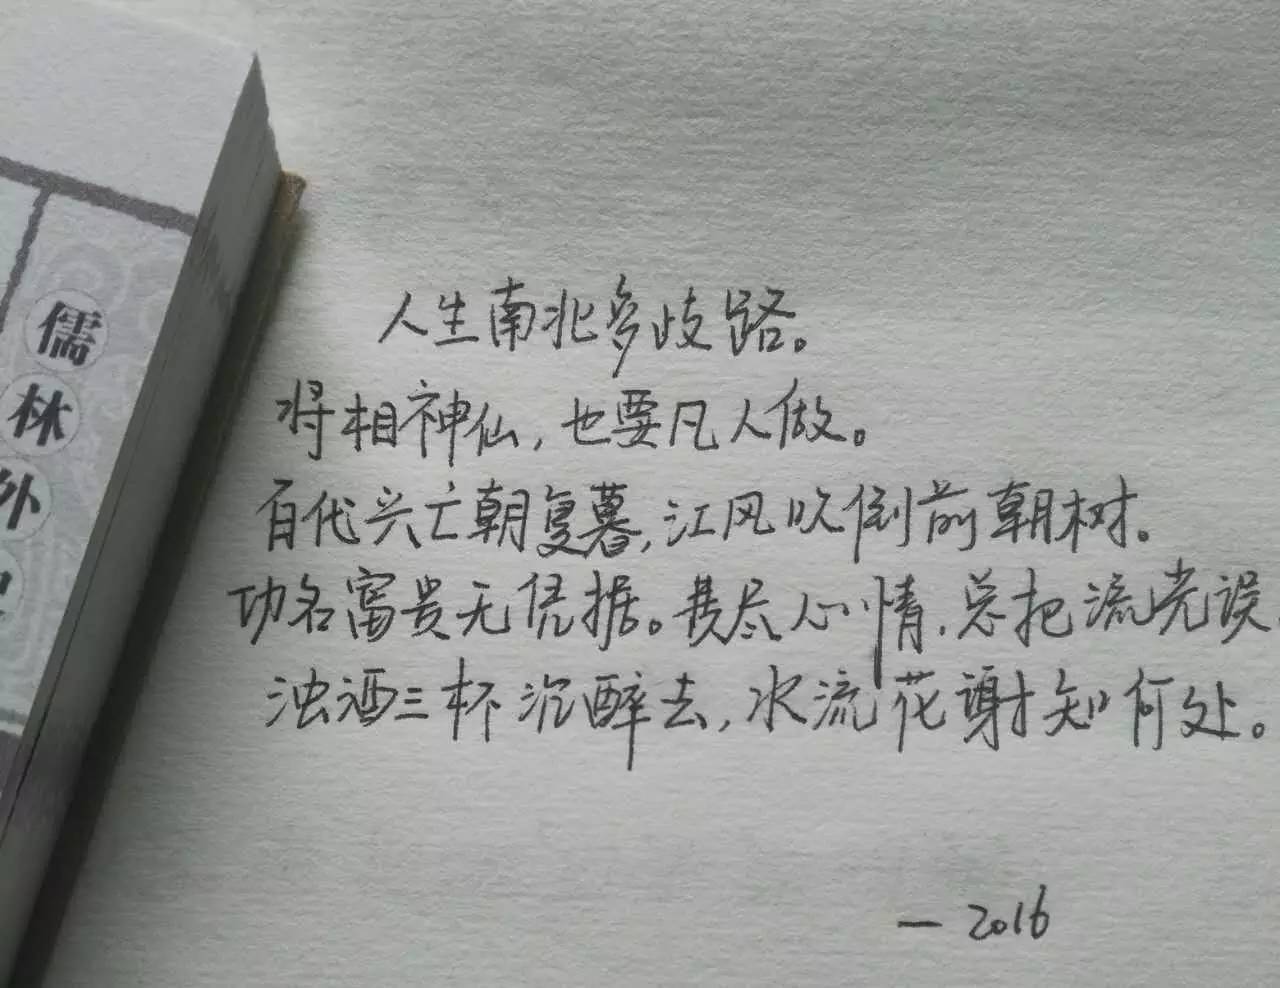 儒林外史
人生南北多歧路。
将相神仙，也要凡人做。
百代兴亡朝复暮，江风吹倒前朝树。
功名富贵无凭据。费尽心情，总把流光误，
浊酒三杯沉醉去，水流花谢知何处。
— 2016